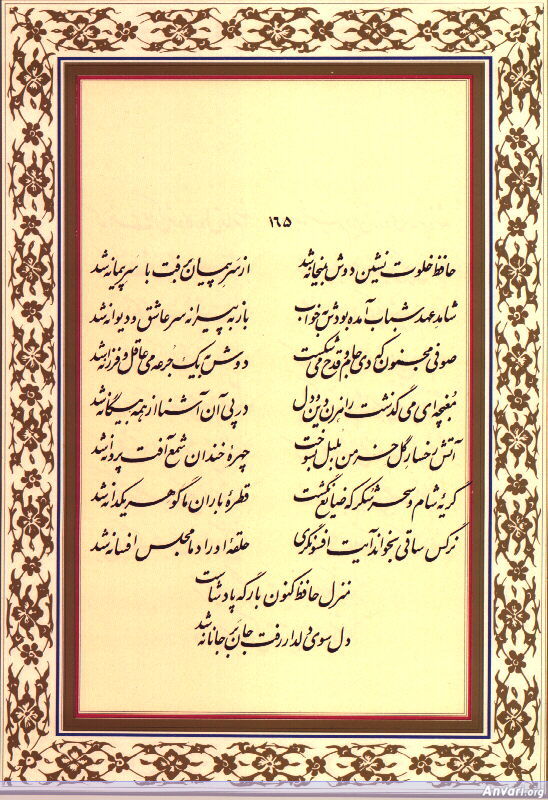 ۱۶۵
حافظ خلوت نشین دوش بمیخانه شد از سر پیمان برفت با سر پیمانه شد
شاهد عهد شباب آمده بودش به خواب باز به پیرانه سر عاشق و دیوانه شد
صوفی مجنون که دی جام و قدح می شکست دوش به یک جرعه می عاقل و فرزانه شد
مغبچه ای می گذشت راهزن دین و دل در پی آن آشنا از همه بیگانه شد
آتش رخسار گل خرمن بلبل بسوخت چهرهٔ خندان شمع آفت پروانه شد
گریهٔ شام و سحر شکر که ضایع نگشت قطرهٔ باران ما گوهر یکدانه شد
نرگس ساقی بخواند آیت افسونگری حلقهٔ اوراد ما مجلس افسانه شد
منزل حافظ کنون بارگه پادشاست
دل سوی دلدار رفت جان بر جانانه شد
Anvari.org